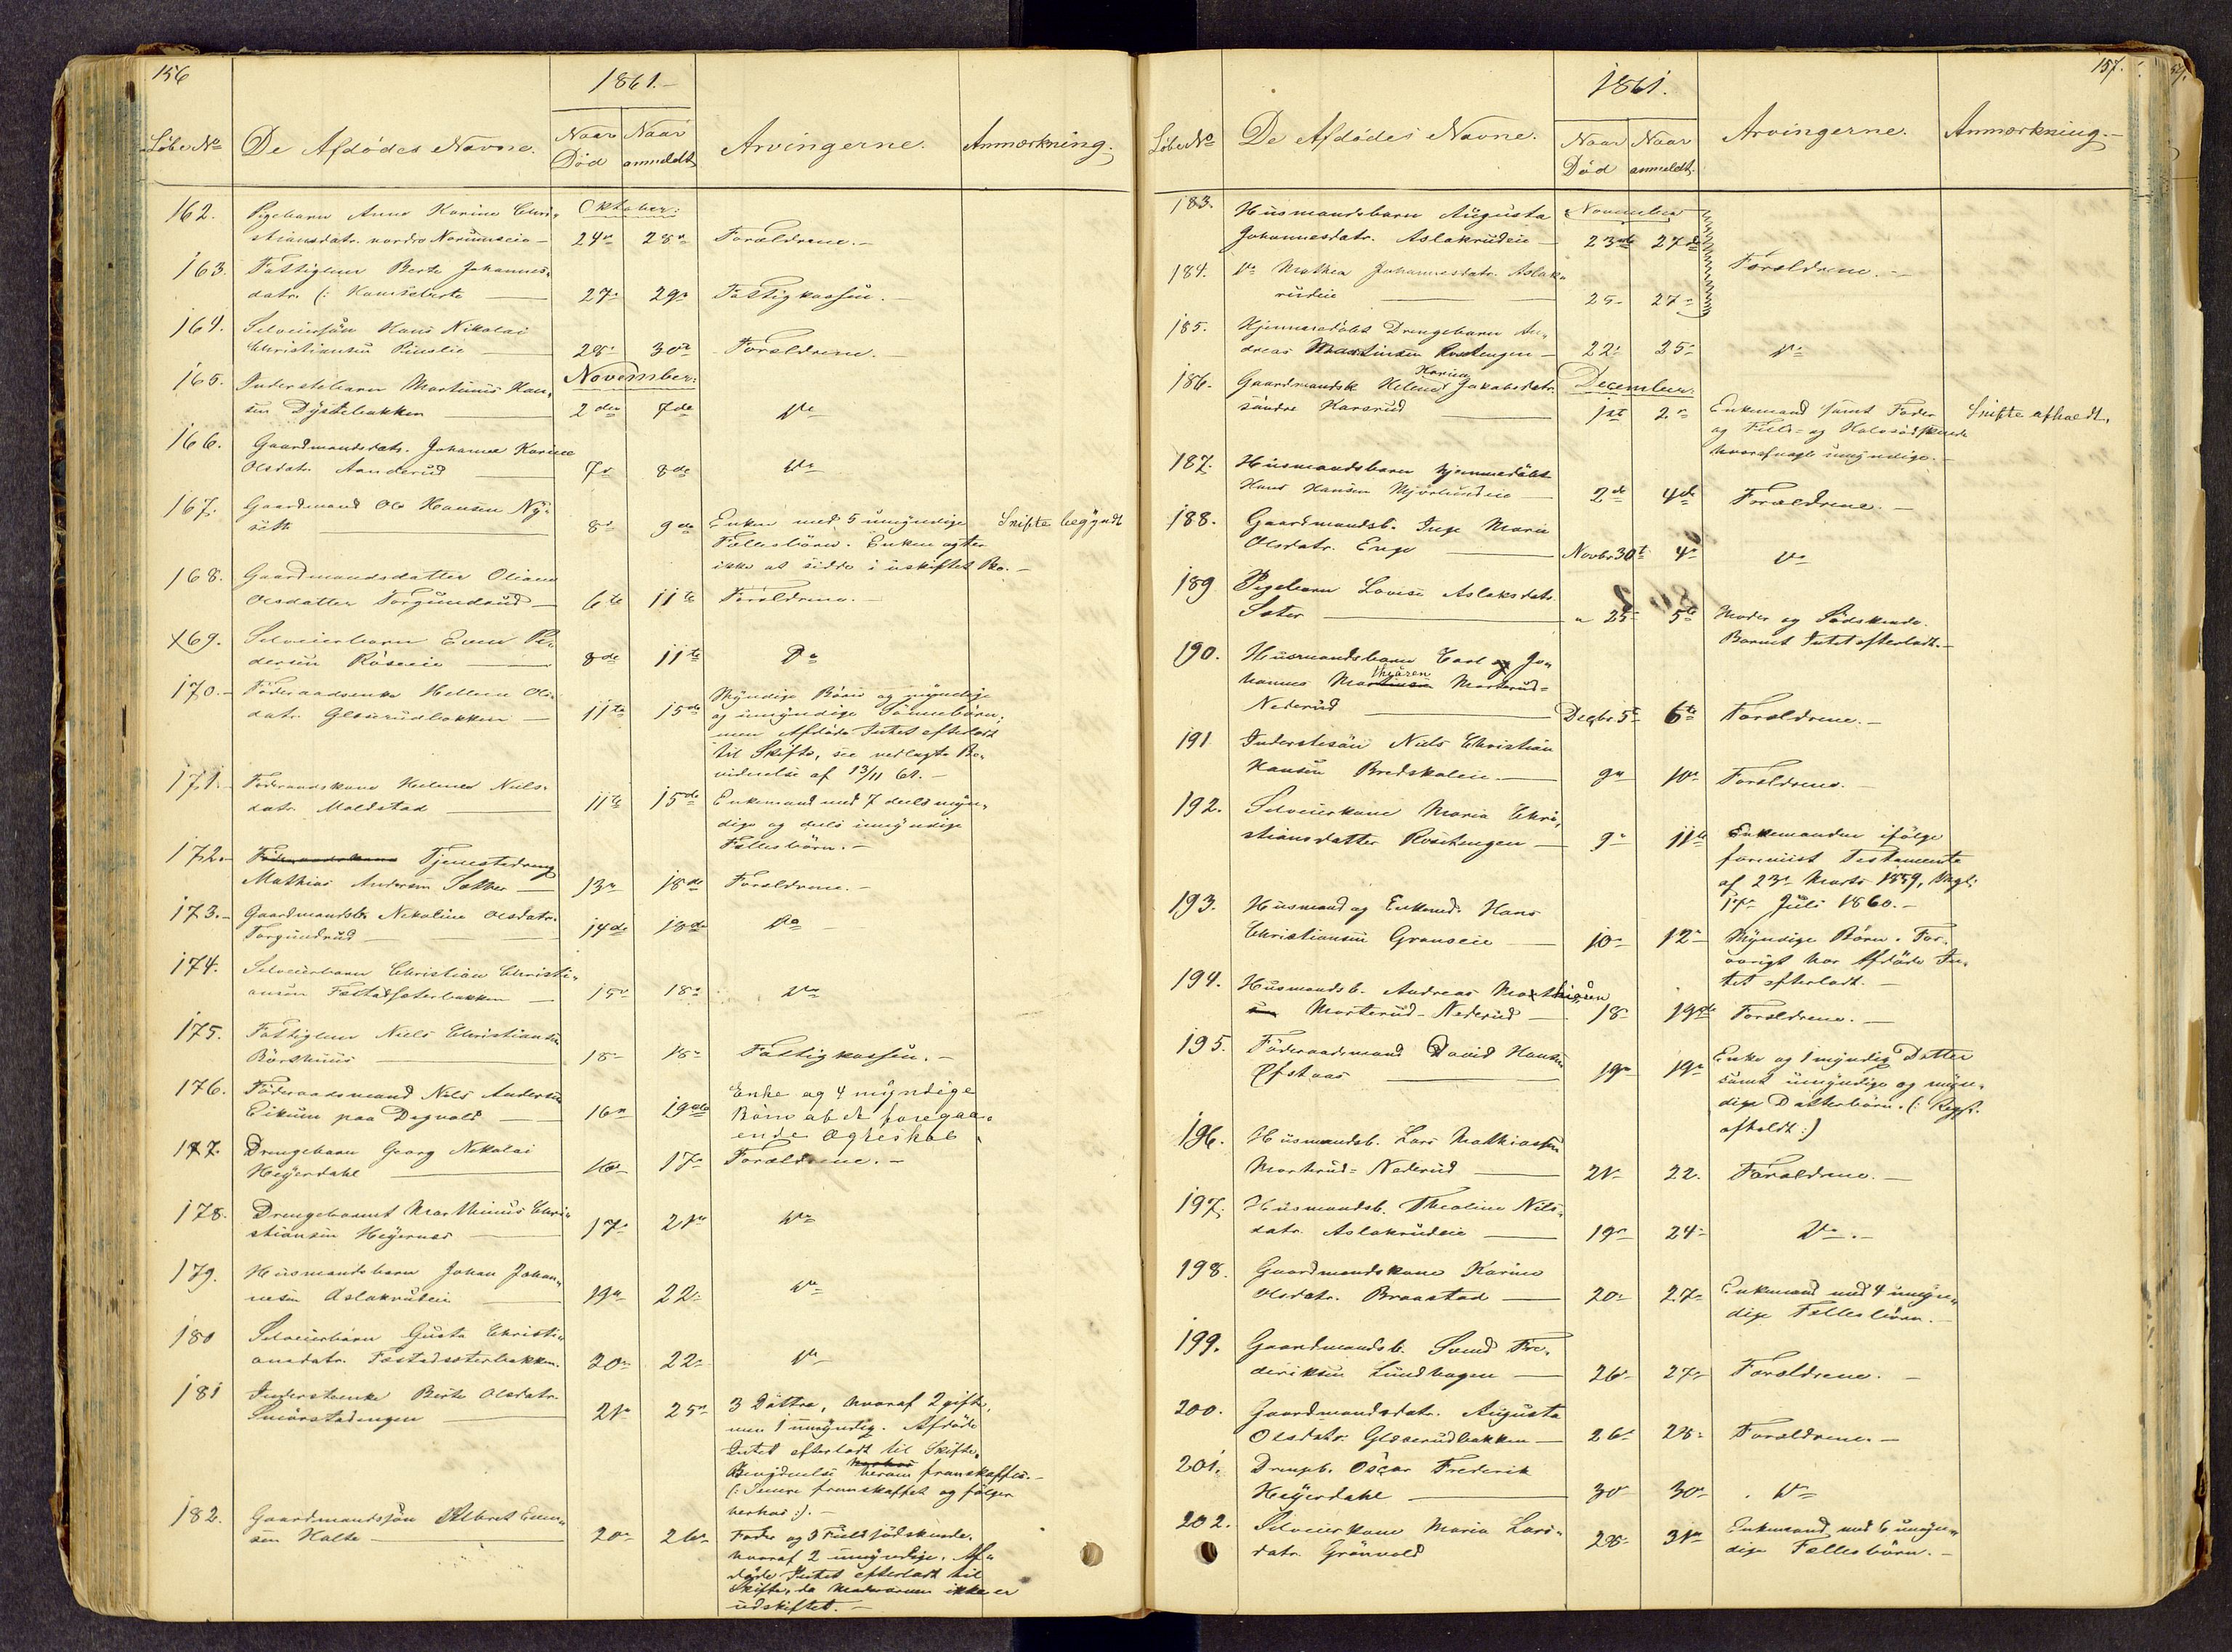 156
1861.-
Löbe No
De Afdödes Navne.
Naar Död
Naar anmeldt
Arvingerne.
Anmærkning.
Oktober:
162. Pigebarn Anne Karine Chri-
stiansdatr. nordre Norumseie - 24de 28de Forældrene.-
163. Fattiglem Berte Johannes-
datr. (: 27de 29de Fattigkassen.-
164. Selveiersön Hans Nikolai
Christiansen 28de 30te Forældrene.-
November:
165. Inderstebarn Martinus Han-
sen Dystebakken 2den 7de Do
166. Gaardmandsdatr. Johanne Karine
Olsdatr. Aanderud 7de 8de Do
167. Gaardmand Ole Hansen Ny-
sett 8de 9de Enken med 5 umyndige Skifte begyndt
Fællesbörn. Enken agter
ikke at sidde i uskiftet Bo.-
168. Gaardmandsdatter Oliane
Olsdatter Torgundrud - 6te 11te Forældrene.-
169. Selveierbarn Even Pe-
dersen Röseeie 8de 11te Do
170.- Föderaadsenke Hellene Ols-
datr. Glæserudbakken - 11te 15de Myndige Börn og myndige
og umyndige Sönnebörn,
men Afdöde Intet efterladt
til Skifte, see vedlagte Be-
vidnelse af 13/11 61.-
171.- Föderaadskone Helene Niels-
datr. Moldstad 11te 15de Enkemand med 7 deels myn-
dige og deels umyndige
Fællesbörn.-
172.- Föderaadskone Tjenestedreng
Mathias Andersen Sæther - 13de 18de Forældrene.-
173.- Gaardmandsb. Nikoline Olsdatr.
Torgundrud 14de 18de Do
174. Selveierbarn Christian Christi-
ansen Fæstadsæterbakken - 15de 18de Do
175. Fattiglem Niels Christiansen
Börshuus 18de 18de Fattigkassen.-
176. Föderaadsmand Niels Andersen
Eikum paa Degvold 16de 19de Enke og 4 myndige
Börn af det foregaa-
ende Ægteskab
177. Drengebarn Georg Nikolai
Heyerdahl 16de 17de Forældrene.-
178. Drengebarnet Marthinus Chri-
stiansen 17de 21de Do
179. Husmandsbarn Johan Johan-
nesen Aslakrudeie 19de 22de Do
180 Selveierbarn Gusta Christi-
ansdatr. Fæstadsæterbakken. 20de 22de Do
181 Inderstenke Berte Olsdatr.
Smörstadengen 21de 25de 3 Döttre, hvoraf 2 gifte,
men 1 umyndig. Afdöde
Intet efterladt til Skifte.
Bevidnelse herom fremskaffes.-
(: Senere fremskaffet og fölger
herhos :).-
182. Gaardmandssön Albret Even-
sen Holte 20de 26de Fader og Fuldsödskende,
hvoraf 2 umyndige. Af-
döde Intet efterladt til
Skifte, da Mödrearven ikke er
udskiftet.-
157.
1861.
Löbe No
De Afdödes Navne.
Naar Död
Naar anmeldt.
Arvingerne.
Anmærkning.-
November
183. Husmandsbarn Augusta
Johannesdatr. Aslakrudeie 23de 27de
184. Do Mathea Johannesdatr. Aslak-
rudeie 25 27de Forældrene.-
185. Hjemmedöbt Drengebarn An-
dreas Martinsen 22de 25de Do
December.
186. Gaardmandsk. Helene Karine Jakobsdatr.
söndre Karsrud 1st 2de Enkemand samt Fader Skifte afholdt.
og Fuld- og Halvsödskende
hvoraf nogle umyndige.-
187. Husmandsbarn hjemmedöbt
Hans Hansen Mjörlundeie 2de 4de Forældrene.-
188. Gaardmandsb. Inge Marie
Olsdatr. Enge Novbr 30te 4de Do
189 Pigebarn Lovise Aslaksdatr.
Sæter " 25de 5te Moder og Södskende.
Barnet Intet efterladt.-
190. Husmandsbarn Carl Jo-
hannes Martinsen Morterud-
Nederud Decbr 5te 6te Forældrene.-
191 Inderstesön Niels Christian
Hansen Bredskaleie.- 9de 10de Forældrene.-
192. Selveierkone Maria Chri-
stiansdatter 9de 11te Enkemanden ifölge
foreviist Testamente
af 23de Marts 1859, thgl.
17de Juli 1860.-
193. Husmand og Enkemd. Hans
Christiansen Granseie 10de 12te Myndige Börn. For-
övrigt har Afdöde In-
tet efterladt.-
194. Husmandsb. Andreas Mathiesen
Morterud-Nederud 18de 19de Forældrene.-
195. Föderaadsmand David Hansen
Ofstaas 19de 19de Enke og 1 myndig Datter
samt umyndige og myn-
dige Datterbörn. (:
afholdt :)
196. Husmandsb. Lars Mathiassen
Morterud-Nederud 21de 22. Forældrene.-
197. Husmandsb. Theoline Nils-
datr. Aslakrudeie 19de 24de Do.-
198. Gaardmandskone Karine
Olsdatr. Braastad 20de 27de Enkemand med 4 umyn-
dige Fællesbörn.-
199. Gaardmandsb. Svend Fre-
deriksen Lundhagen 26de 27de Forældrene.-
200. Gaardmandsdatr. Augusta
Olsdatr. Glæserudbakken 26de 28de Forældrene.-
201. Drengeb. Oscar Frederik
Heyerdahl 30te 30te Do
202. Selveierkone Maria Lars-
datr. Grönvold 28de 31te Enkemand med 6 umyn-
dige Fællesbörn.-